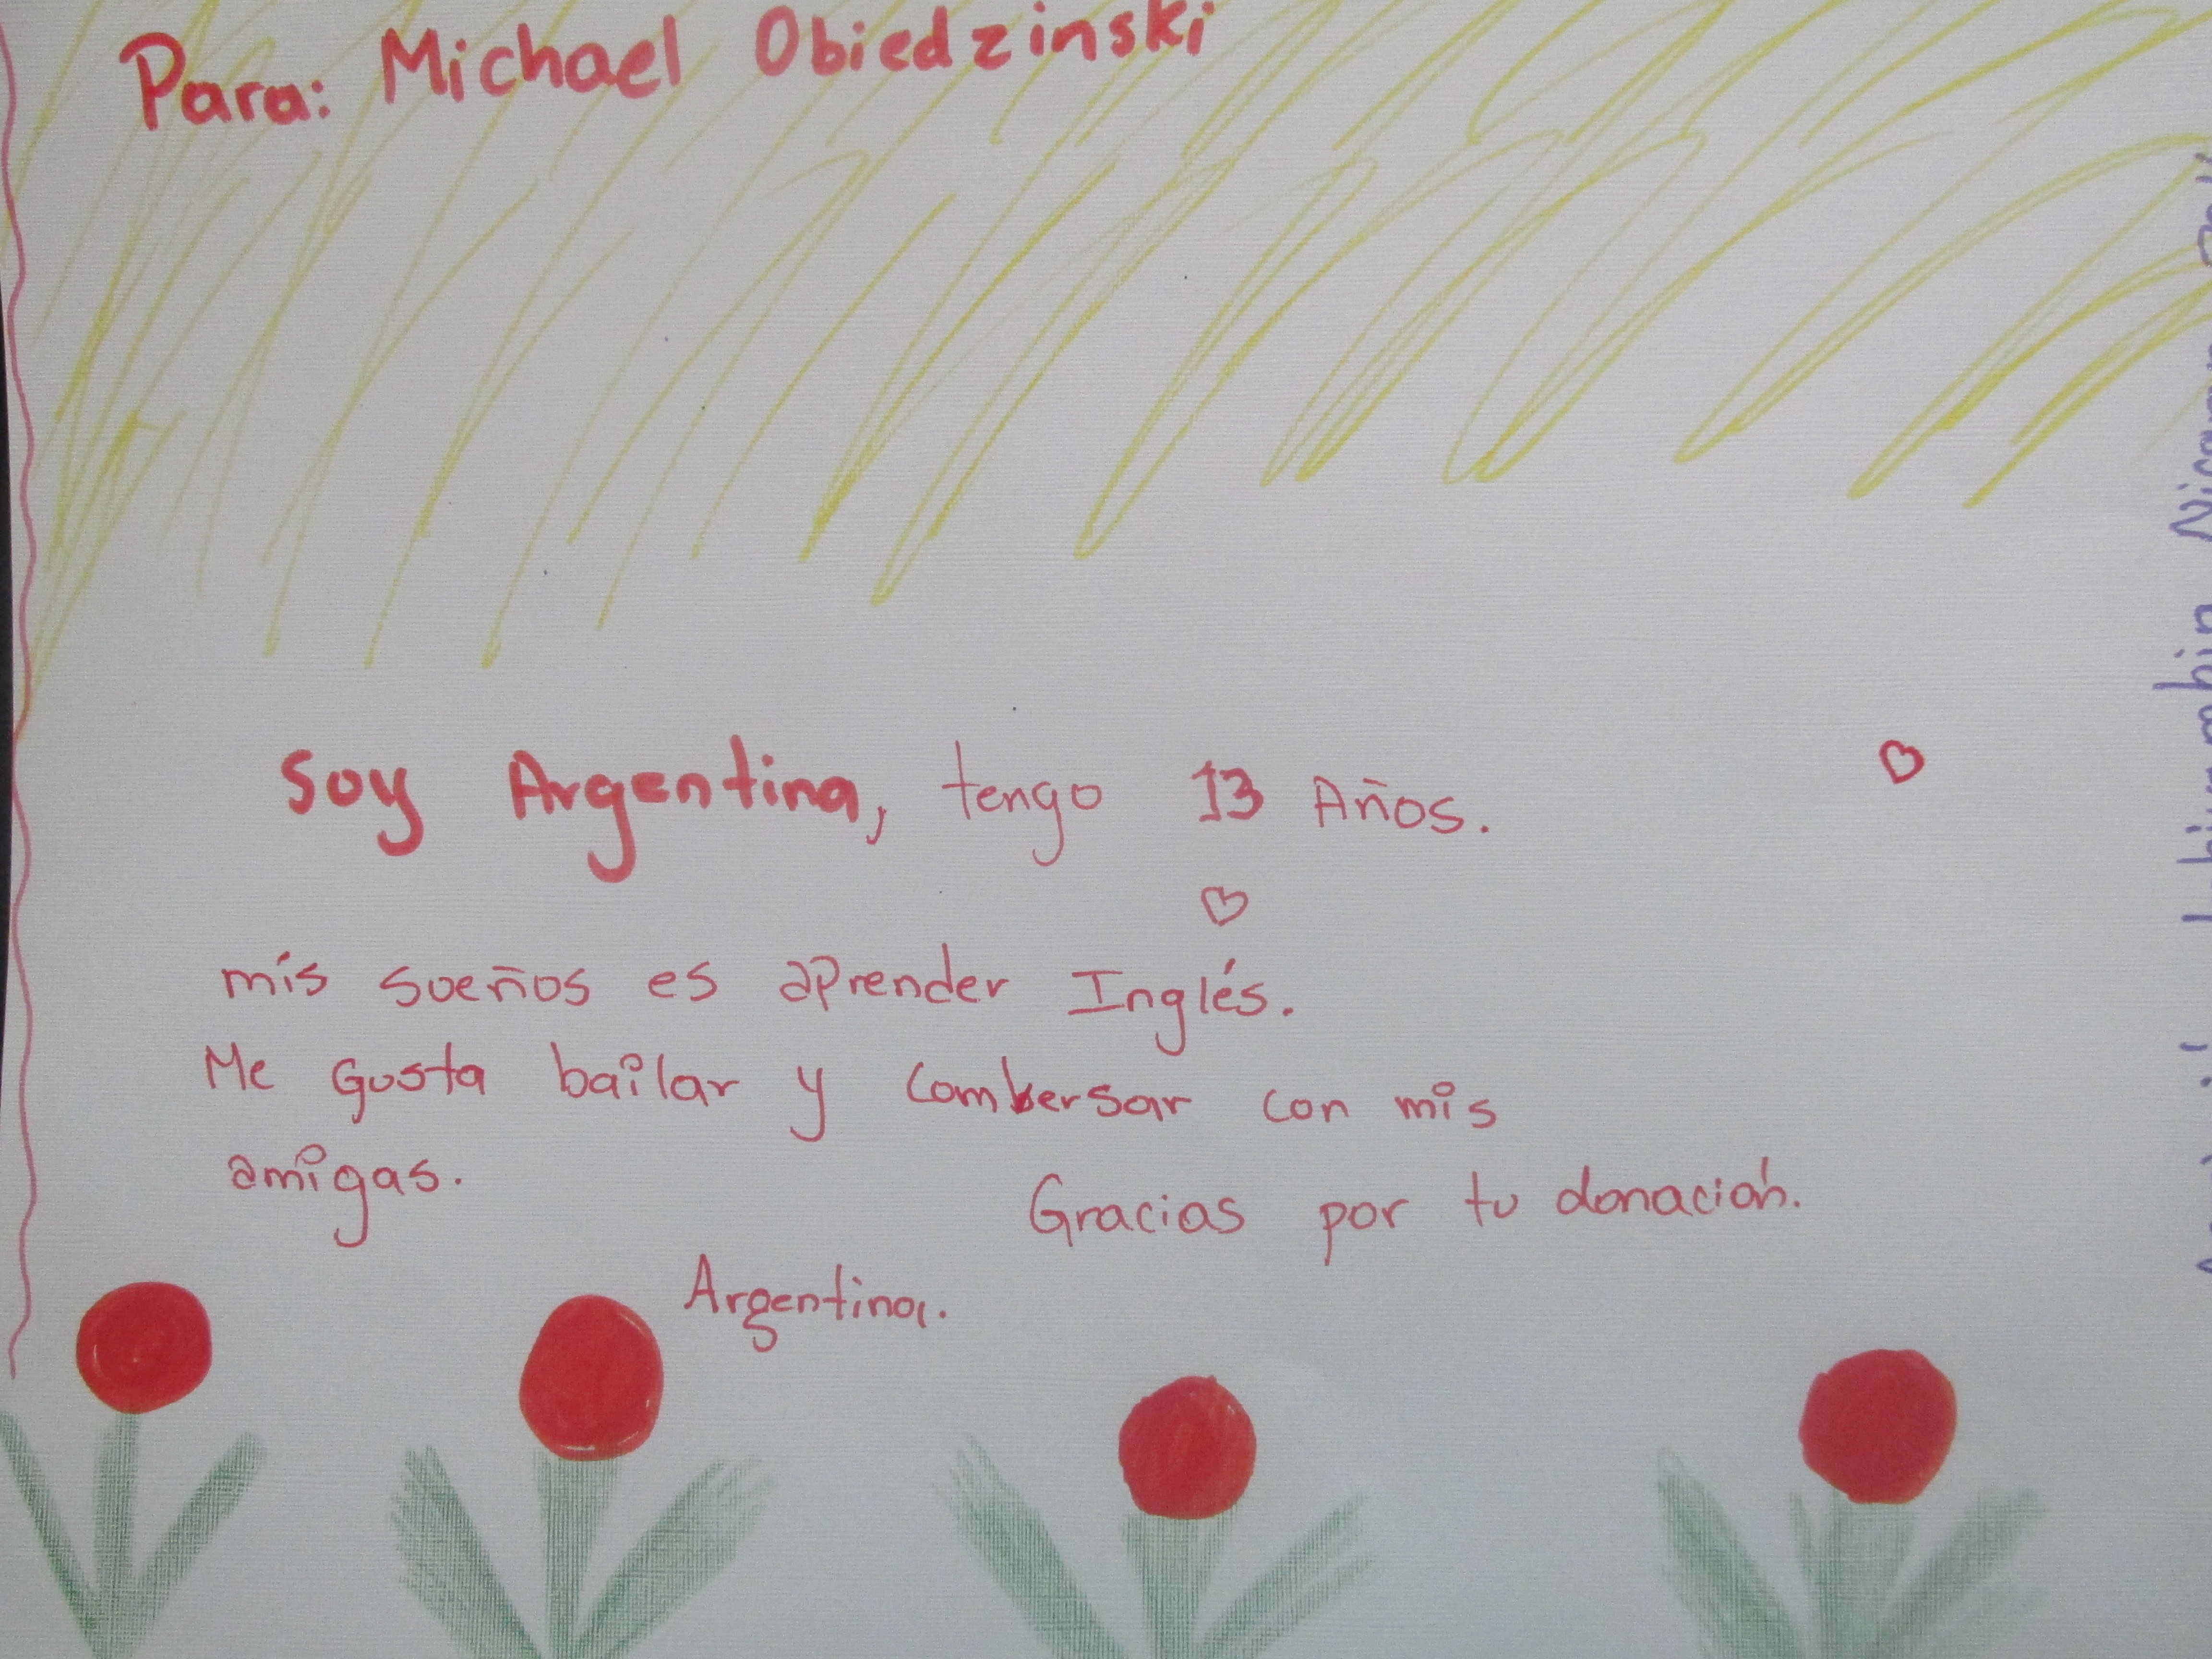 Para: Michael Obiedzinski
Soy Argentina, tengo 13 Años.
mis sueños es aprender Inglés.
Me Gusta bailar y combersar con mis
amigas.
Gracias por tu donación.
Argentina.